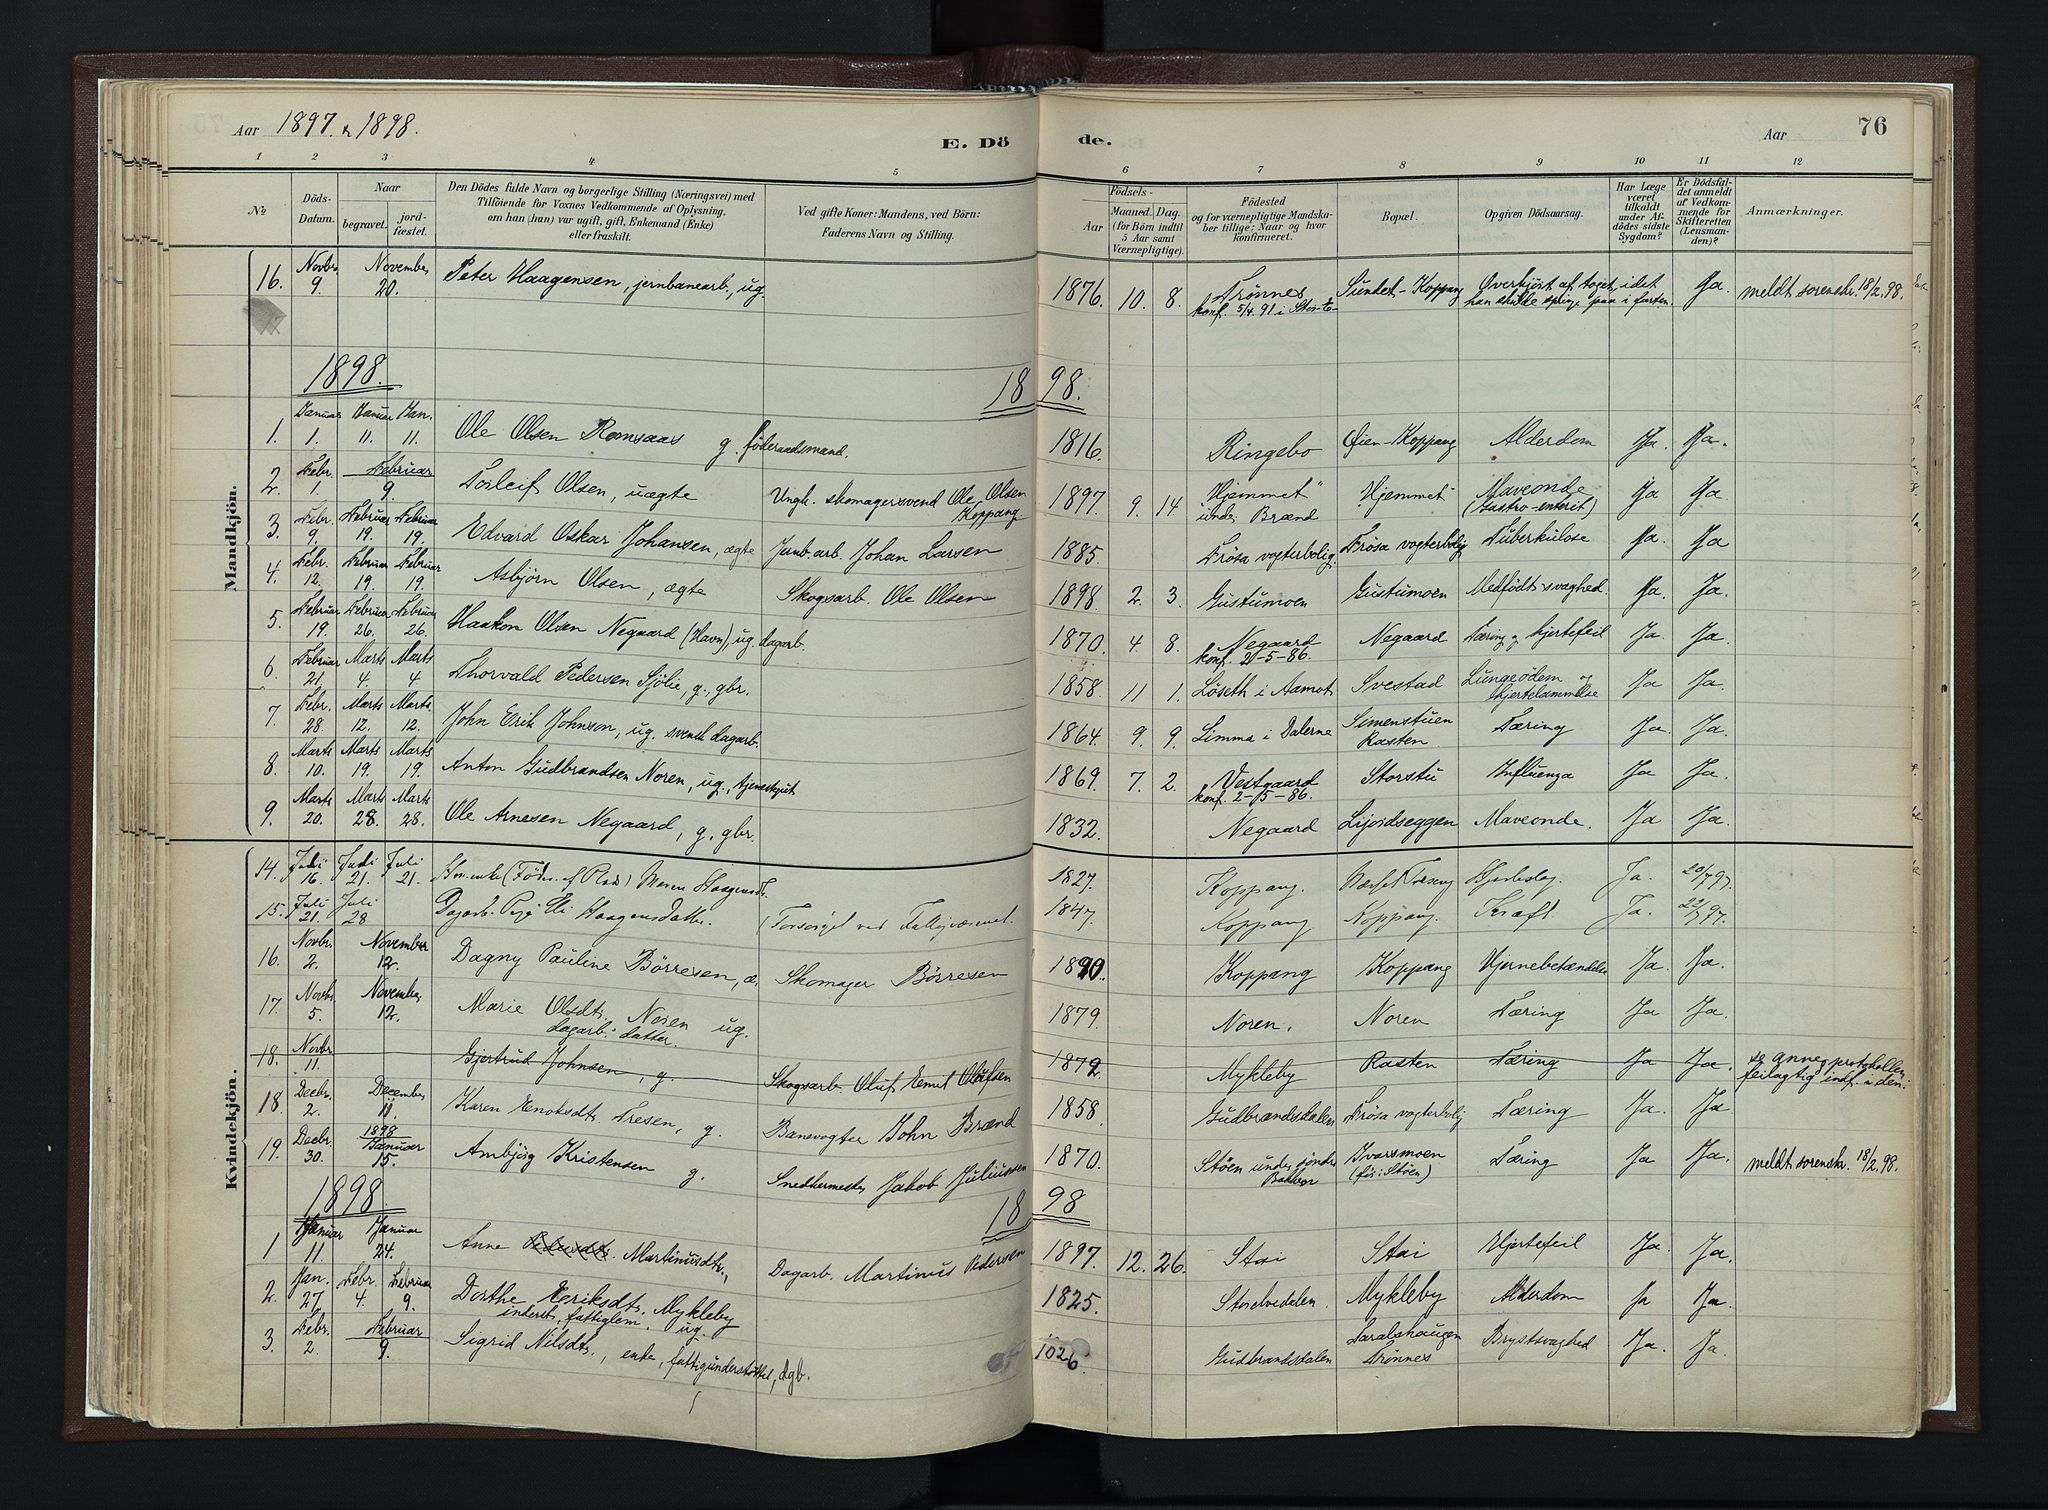 Aar 1897. & 1898.
E. Dö
de.
Aar
76
1 2 3 4 5 6 7 8 9 10 11 12
№
Döds-Datum.
Naar
begravet.
jord-fæstet.
Den Dödes fulde Navn og borgerlige Stilling (Næringsvei) med
Tilföiende for Voxnes Vedkommende af Oplysning,
om han (hun) var ugift, gift, Enkemand (Enke)
eller fraskilt.
Ved gifte Koner: Mandens, ved Börn:
Faderens Navn og Stilling.
Födsels-
Aar
Maaned. Dag.
(for Börn indtil
5 Aar samt
Værnepligtige).
Födested
og for værnepligtige Mandska-
ber tillige: Naar og hvor
konfirmeret.
Bopæl.
Opgiven Dödsaarsag.
Har Læge
været
tilkaldt
under Af-
dödes sidste
Sygdom?
Er Dödsfal-
det anmeldt
af Vedkom-
mende for
Skifteretten
(Lensman-
den)?
Anmærkninger.
Mandkjön.
16. Novbr. 9. November 20. Peter Haagensen, jernbanearb., ug. 1876. 10. 8. Trönnes konf. 5/4. 91 i Stor- Sundet-Koppang Overkjört af toget, idet han skulde springe paa i farten. Ja. meldt sorenskr. 18/2. 98.
1898.
18 98.
1. Januar 1. Januar 11. Jan. 11. Ole Olsen Romsaas g. föderaadsmand. 1816. Ringebo Öien-Koppang Alderdom Ja. Ja.
2. Febr. 1. Februar 9. Torleif Olsen, uægte Ungk. skomagersvend Ole Olsen Koppang. 1897. 9. 14. "Hjemmet" under Brænd Hjemmet Maveonde (Gastro-enterit) Ja Ja.
3. Febr. 9. Februar 19. Februar 19. Edvard Oskar Johansen, ægte Jernb. arb. Johan Larsen 1885. Trösa vogterbolig. Trösa vogterbolig Tuberkulose Ja. Ja
4. Febr. 12. Februar 19. Februar 19. Asbjörn Olsen, ægte Skogsarb. Ole Olsen 1898. 2. 3. Gustumoen Gustumoen Medfödt svaghed. Ja. Ja.
5. Februar 19. Februar 26. Februar 26. Haakon Olsen Negaard (Havn), ug. dagarb. 1870. 4 8. Negaard konf. 2-5-86. Negaard Tæring og hjertefeil Ja. Ja.
6 Februar 21. Marts 4. Marts 4 Thorvald Pedersen Sjölie, g., gbr. 1858. 11 1. Löseth i Aamot Svestad Lungeödem og hjertelammelse Ja Ja.
7. Febr. 28. Marts 12. Marts. 12. John Erik Johnson, ug. svensk dagarb. 1864. 9. 9. Limma i Dalerne Simenstuen Rasten Tæring Ja. Ja.
8. Marts 10. Marts 19. Marts 19. Anton Gudbrandsen Noren, ug., tjenestgut 1869. 7. 2. Vestgaard konf. 2-5-86. Storstu Influenza Ja Ja.
9. Marts 20. Marts 28. Marts 28. Ole Arnesen Negaard, g. gbr. 1832. Negaard Lijordseggen Maveonde. Ja Ja.
Kvindekjön.
14. Juli 16. Juli 21. Juli 21. Maren 1827. Koppang. Ja. 20/7 97.
15. Juli 21. Juli 28 Dagarb. Haagensdatter. (Forsörget ved Fattigvæsenet. 1847. Koppang Koppang. Kræft. Ja. 22/7 97.
16. Novbr. 2. November 12. Dagny Pauline Börresen, æ. Skomager Börresen 1890. Koppang Koppang Hjernebetændelse Ja. Ja.
17. Novbr. 5. November 12. Marie Olsdtr. Noren ug. dagarb. datter. 1879. Noren. Noren Tæring Ja Ja.
18. Novbr 11. Gjertrud Johnsen, g. Skogsarb. Oluf Emil Olufsen 1872. Mykleby Rasten Tæring Ja Ja. se annex protokollen feilagtig indf. i den.
18. Decbr. 2. December 11. Karen Enoksdtr. Tresen, g. Banevogter John Brænd 1858. Gudbrandsdalen Trösa vogterbolig Tæring Ja. Ja
19. Decbr. 30. 1898 Januar 15. Ambjörg Kristensen g. Snedkermester Jakob Juliussen 1870. Stöen under söndre Bakken Ivarsmoen (för: Stöen) Tæring Ja Ja. meldt sorenskr. 18/2. 98.
1898
18 98
1 Januar 11. Januar 24. Anne Pedersdtr. Martinusdtr., Dagarb. Martinus Pedersen 1897. 12. 26. Stai Stai Hjertefeil Ja. Ja.
2. Jan. 27. Febr. 4. Februar 9. Dorthe Eriksdtr. Mykleby inderst, fattiglem. ug. 1825. Storelvedalen. Mykleby Alderdom Ja Ja.
3. Febr. 2. Februar 9. Sigrid Nilsdtr., enke, fattigunderstöttet, dgb. 1826. Gudbrandsdalen Taralshaugen Trönnes Brystsvaghed Ja. Ja.